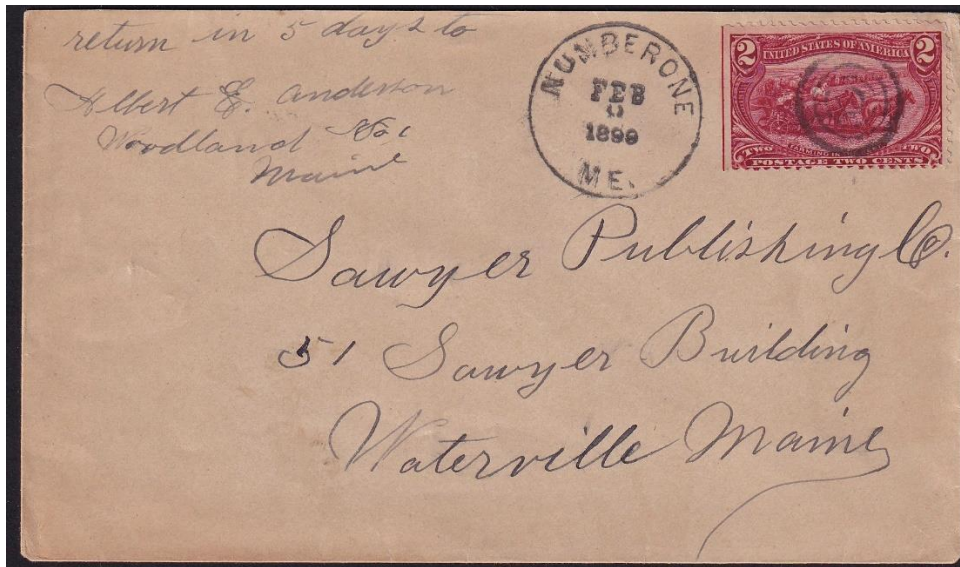 return in 5 days to
Albert E. Anderson
Woodland No 1
Maine
NUMBERONE
FEB
1899
ME.
2 UNITED STATES OF AMERICA 2
TWO FARMING IN TWO
POSTAGE TWO CENTS
Sawyer Publishing Co.
51 Sawyer Building
Waterville Maine